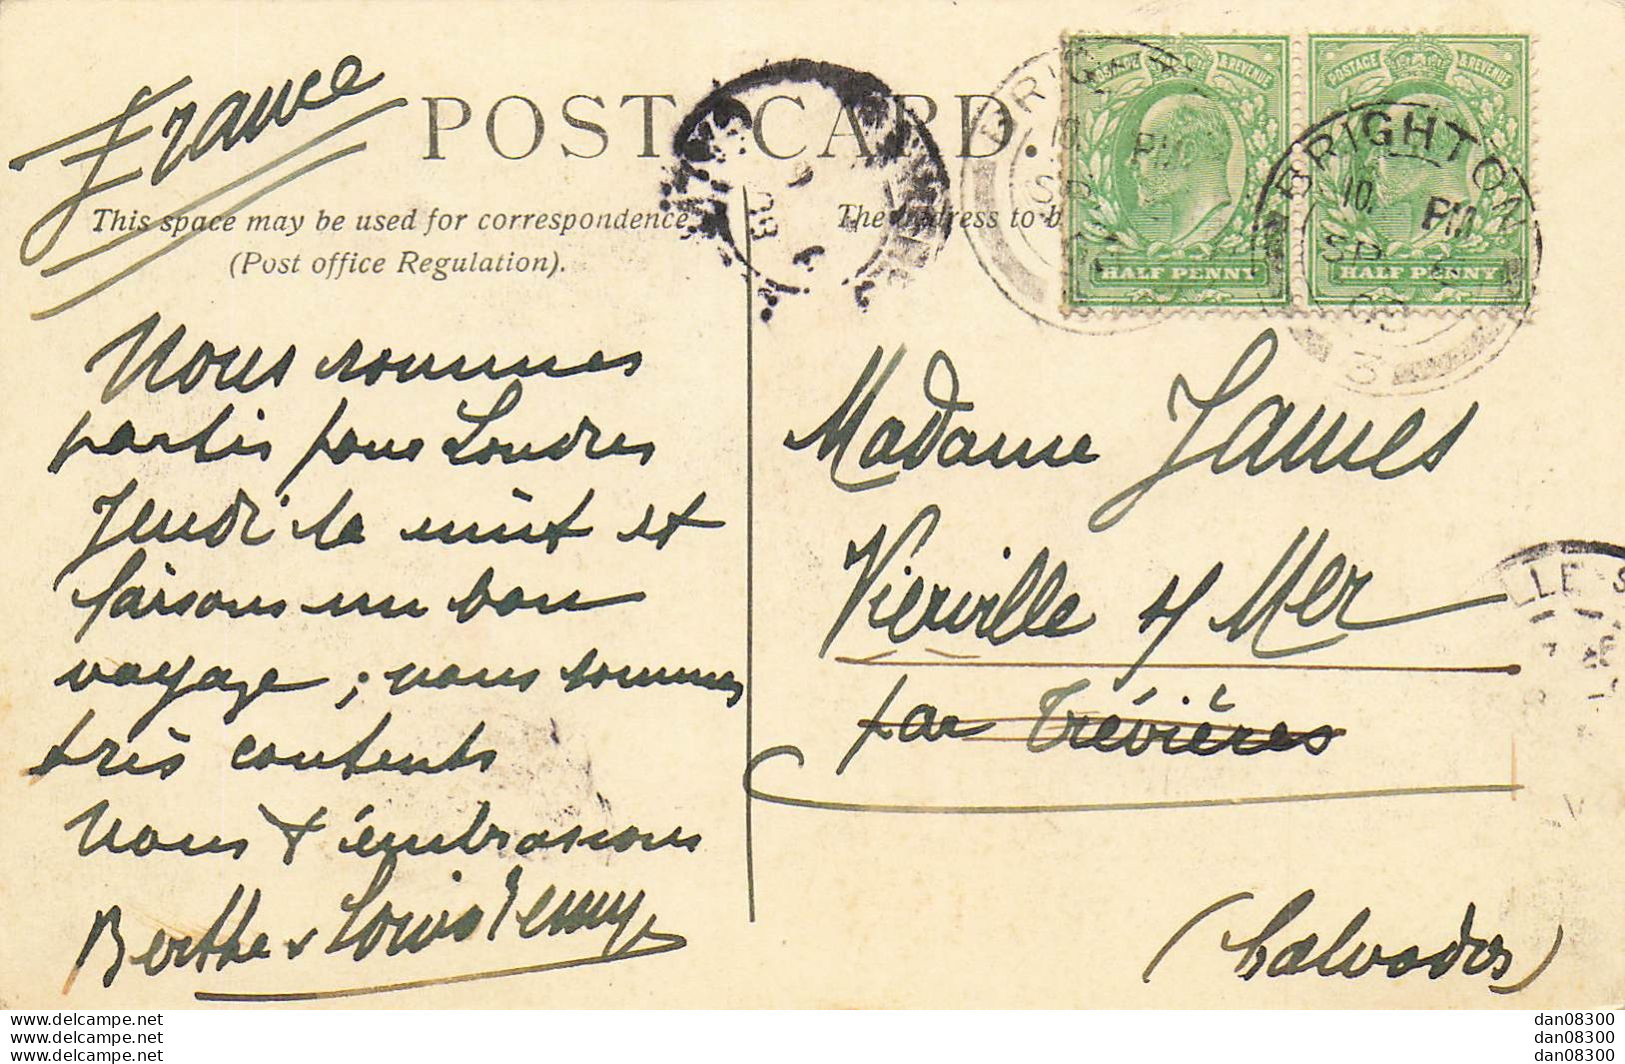 France
POST CARD.
This space may be used for correspondence
(Post office Regulation).
The address to b
POSTAGE & REVENUE
HALF PENNY
POSTAGE & REVENUE
HALF PENNY
BRIGHTON
10. PM
SP
03
3
Nous sommes
partis pour Londres
Jeudi la nuit et
faisons un bon
voyage ; nous sommes
très contents
Nous t'embrassons
Berthe & Louis
Madame James
Vierville s/ Mer
par Trévières
(Calvados)
LLE S
www.delcampe.net
www.delcampe.net
www.delcampe.net
dan08300
dan08300
dan08300